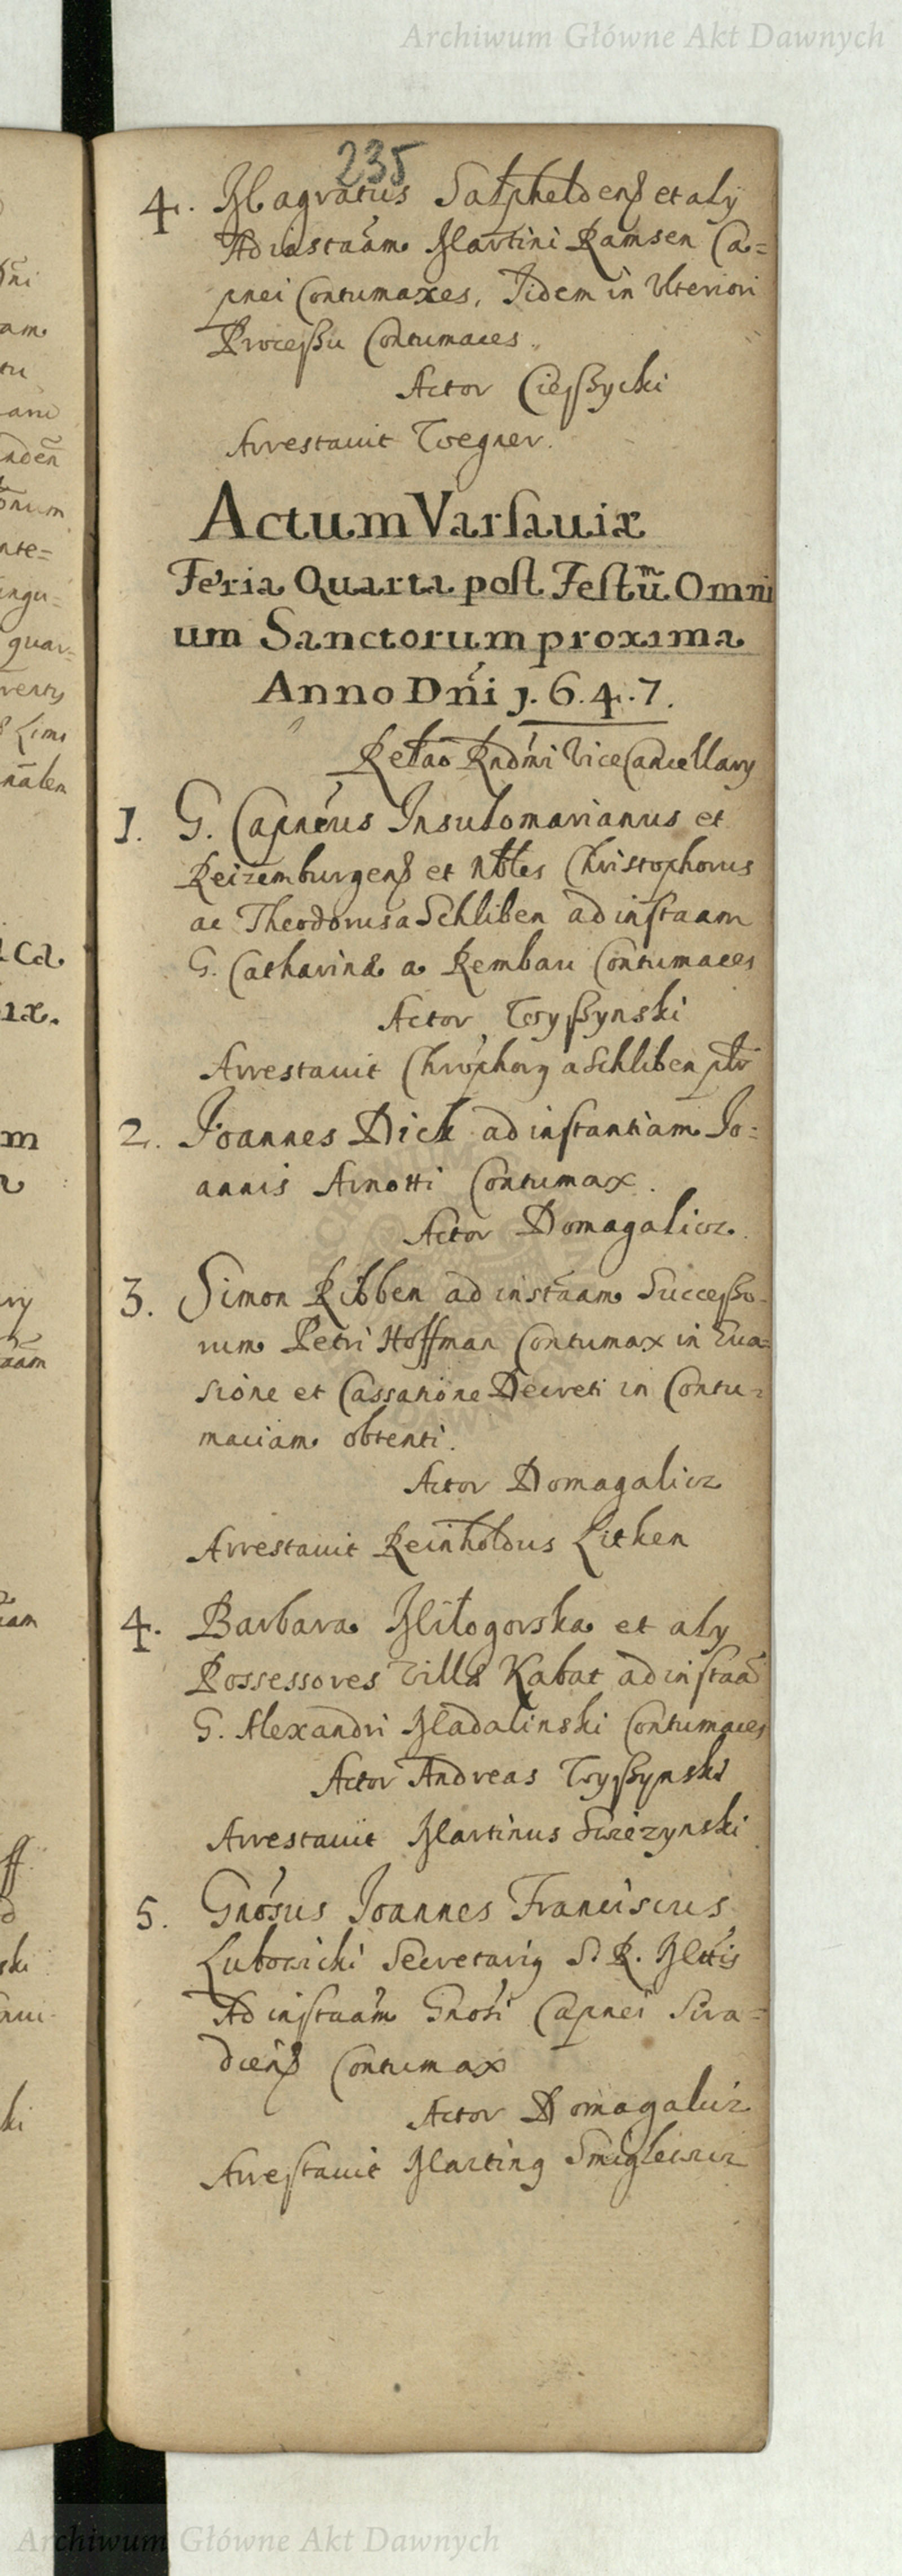 Archiwum Główne Akt Dawnych
235
4. Magratus Salpheldenß et aly
Ad instaam Martini Ramsen Ca=
pnei Contumaxes, Iidem in Ulteriori
Processu Contumaces
Actor Cieszycki
Arrestauit Wegner.
Actum Varsauiæ
Feria Quarta post Festum Omni
um Sanctorum proxima
Anno Dni 1.6.4.7.
Relao Rndmi ViceCancellary
1. G. Capneus Insulomarianus et
Reizemburgenß et Nbles Christophorus
ac Theodorus a Schliben ad instaam
G. Catharinæ a Rembau Contumaces
Actor Wyszynski
Arrestauit Chrophorg a Schliben
2. Joannes Dick ad instantiam Jo=
annis Arnotti Contumax.
Actor Domagalicz.
3. Simon Ribben ad instaam Successo=
rum Petri Hoffman Contumax in Eua=
sione et Cassatione Decreti in Contu=
maciam obtenti.
Actor Domagalicz
Arrestauit Reinholdus Litken
4. Barbara Miłogorska et aly
Possessores Villæ Kabat ad instaa
G. Alexandri Madalinski Contumaces
Actor Andreas Wyszynski
Arrestauit Martinus
5. Gnosus Joannes Franciscus
Lubowicki Secretarig S. R. Mttis
Ad instaam Gnosi Capnei Sira=
dienß Contumax
Actor Domagalicz
Arrestauit Marting Smiglewicz
Archiwum Główne Akt Dawnych